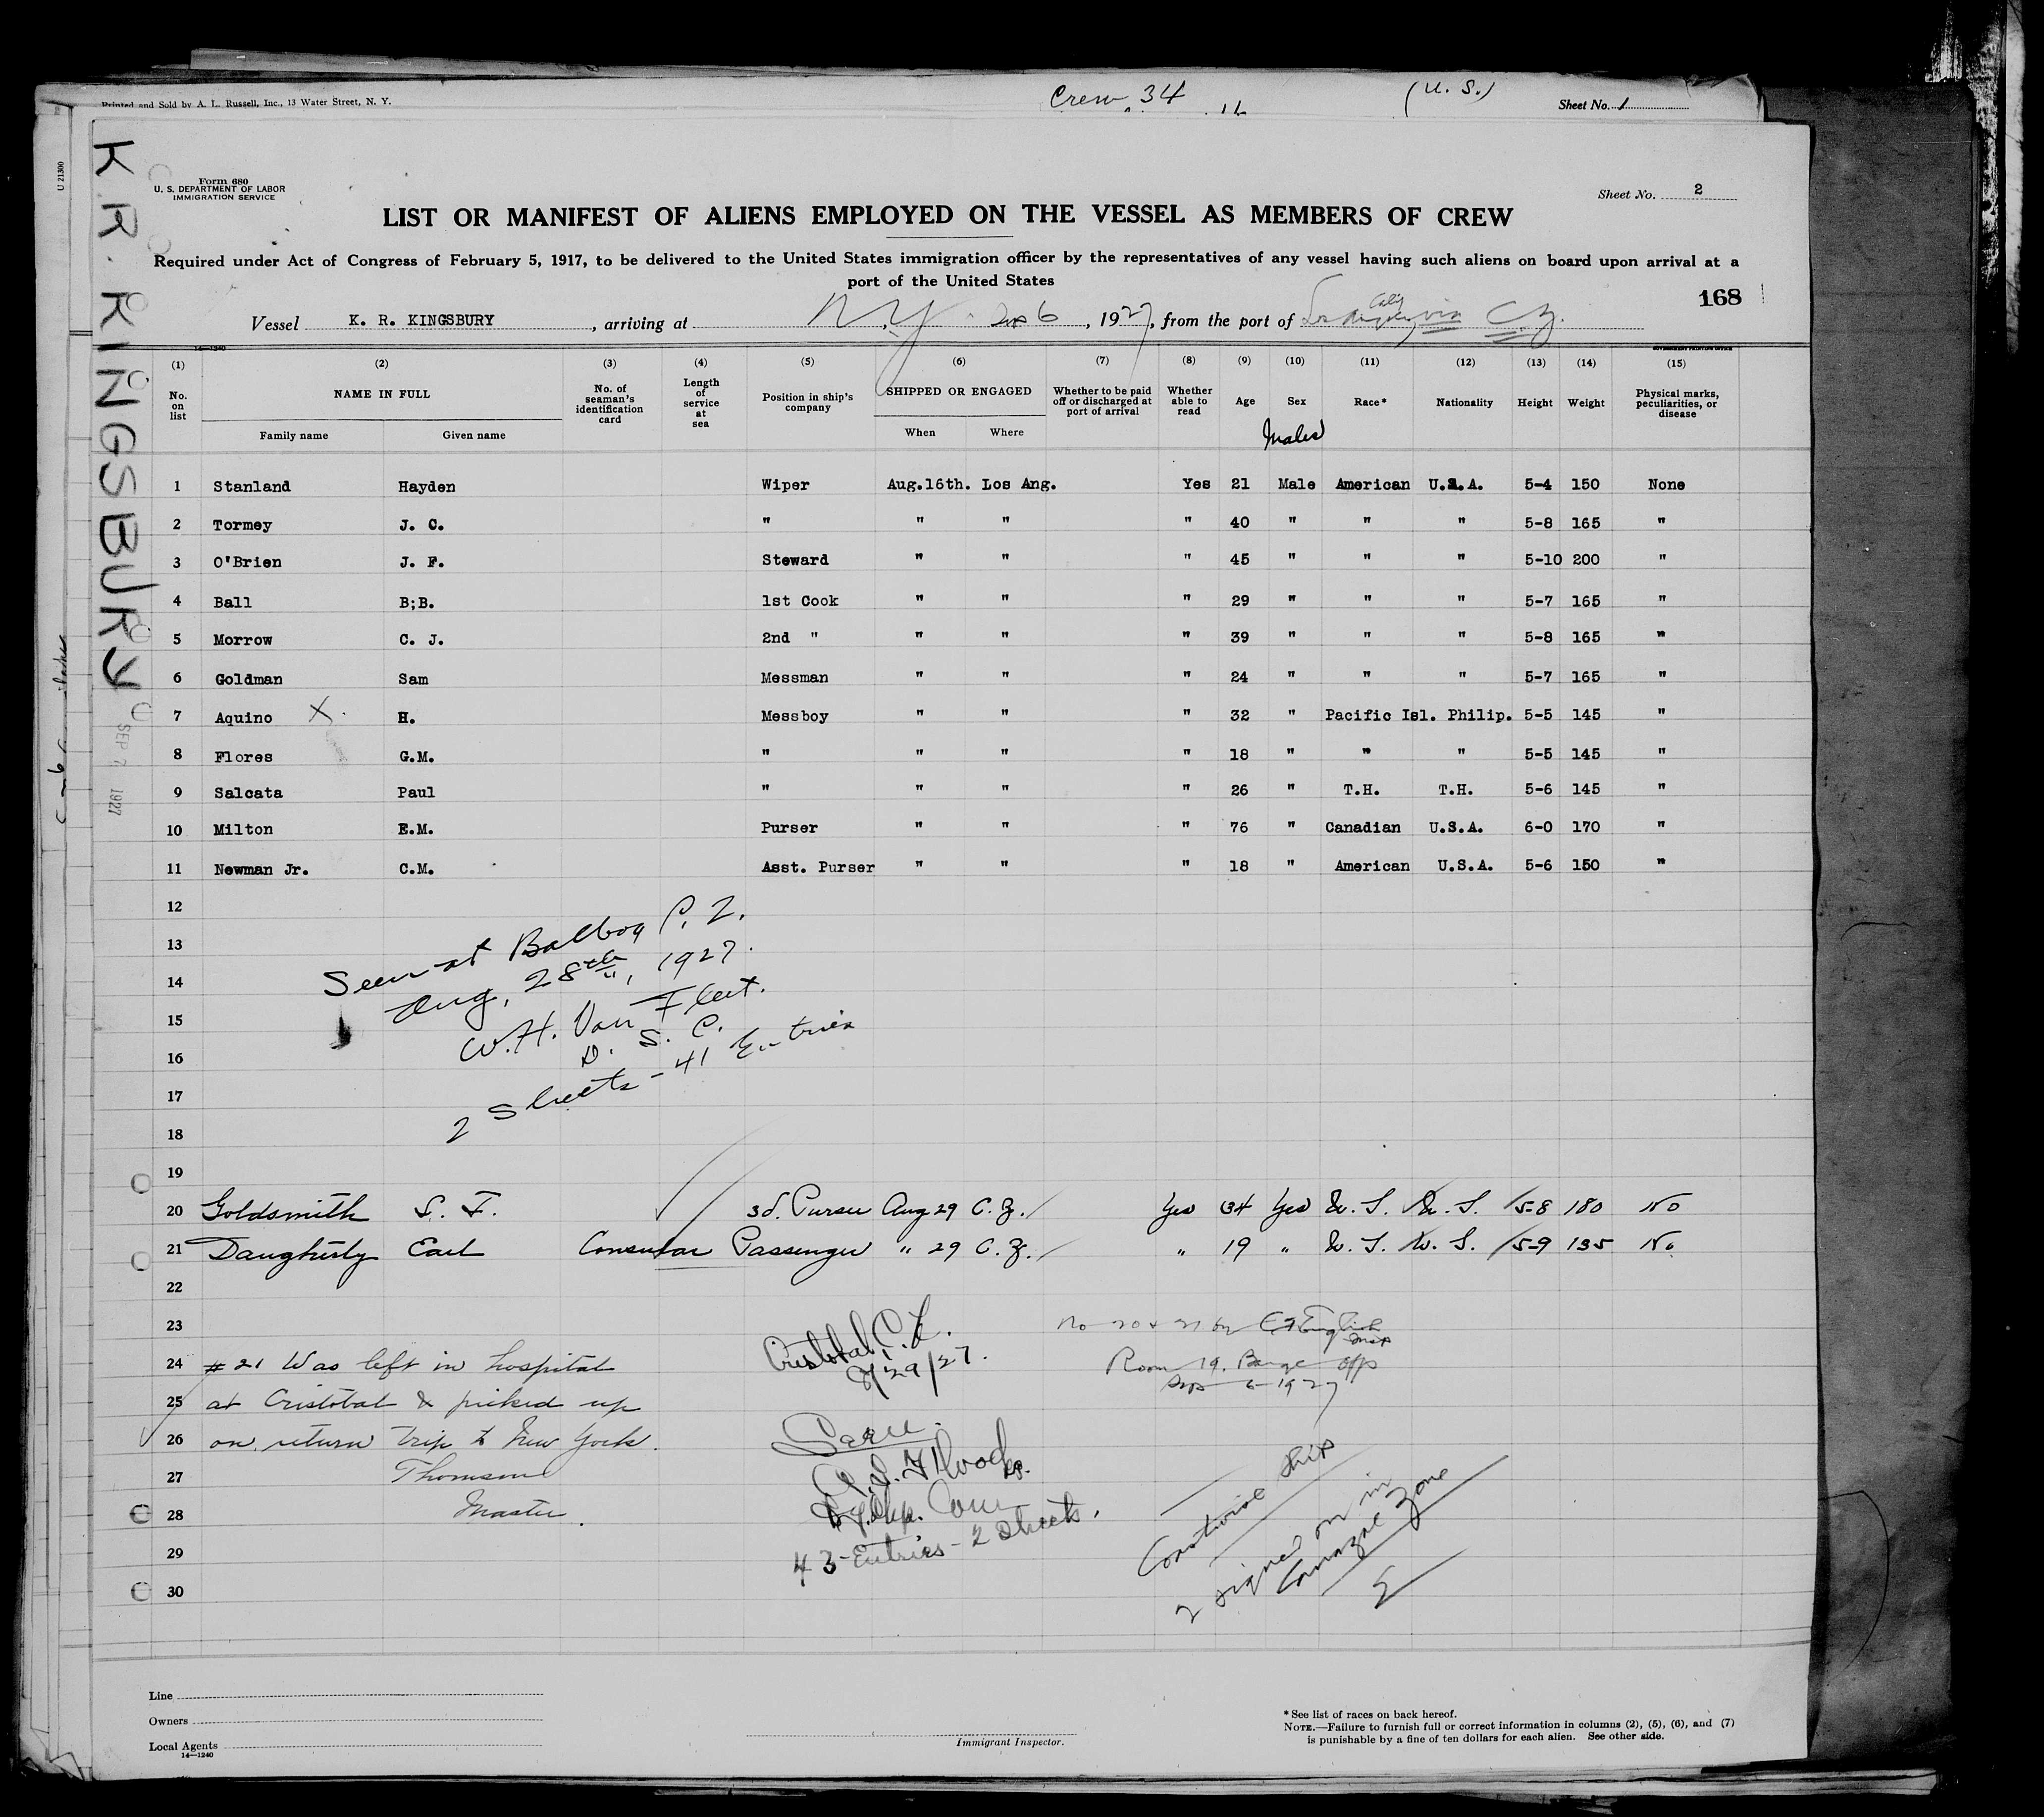 Printed and Sold by A. L. Russell, Inc., 13 Water Street, N. Y.
Crew 34
(U. S.)
Sheet No. 1
U 21300
K. R. KINGSBURY
SEP 7 1927
Form 680
U. S. DEPARTMENT OF LABOR
IMMIGRATION SERVICE
Sheet No. 2
LIST OR MANIFEST OF ALIENS EMPLOYED ON THE VESSEL AS MEMBERS OF CREW
Required under Act of Congress of February 5, 1917, to be delivered to the United States immigration officer by the representatives of any vessel having such aliens on board upon arrival at a
port of the United States
168
Vessel K. R. KINGSBURY, arriving at N. Y. Sep 6, 1927, from the port of Los Angeles Calif via C. Z.
14—1240
GOVERNMENT PRINTING OFFICE
(1) (2) (3) (4) (5) (6) (7) (8) (9) (10) (11) (12) (13) (14) (15)
No. on list
NAME IN FULL
Family name Given name
No. of seaman's identification card
Length of service at sea
Position in ship's company
SHIPPED OR ENGAGED
When Where
Whether to be paid off or discharged at port of arrival
Whether able to read
Age Sex Race* Nationality Height Weight
Physical marks, peculiarities, or disease
Males
1 Stanland Hayden Wiper Aug.16th. Los Ang. Yes 21 Male American U.S.A. 5-4 150 None
2 Tormey J. C. " " " " 40 " " " 5-8 165 "
3 O'Brien J. F. Steward " " " 45 " " " 5-10 200 "
4 Ball B;B. 1st Cook " " " 29 " " " 5-7 165 "
5 Morrow C. J. 2nd " " " " 39 " " " 5-8 165 "
6 Goldman Sam Messman " " " 24 " " " 5-7 165 "
7 Aquino X H. Messboy " " " 32 " Pacific Isl. Philip. 5-5 145 "
8 Flores G.M. " " " " 18 " " " 5-5 145 "
9 Salcata Paul " " " " 26 " T.H. T.H. 5-6 145 "
10 Milton E.M. Purser " " " 76 " Canadian U.S.A. 6-0 170 "
11 Newman Jr. C.M. Asst. Purser " " " 18 " American U.S.A. 5-6 150 "
12
13
14
15
16
17
18
19
Seen at Balboa C. Z.
Aug, 28th, 1927.
W. H. Van Fleet.
D. S. C.
2 Sheets - 41 Entries
20 Goldsmith S. F. 3d. Purser Aug 29 C. Z. Yes 34 Yes U. S. U. S. 5-8 180 No
21 Daugherty Earl Consular Passenger " 29 C. Z. " 19 " U. S. U. S. 5-9 135 No
22
23
24 #21 Was left in hospital
25 at Cristobal & picked up
26 on return trip to New York.
27 Thomson
28 Master.
29
30
Cristobal, C. Z.
8/29/27.
43 - Entries - 2 Sheets.
No 20 & 21 by English
Room 19. Barge Off
Sep 6 1927
Coastwise Ship
2 signed on in
Canal Zone
Line
Owners
Local Agents
14—1240
Immigrant Inspector.
*See list of races on back hereof.
NOTE.—Failure to furnish full or correct information in columns (2), (5), (6), and (7)
is punishable by a fine of ten dollars for each alien. See other side.